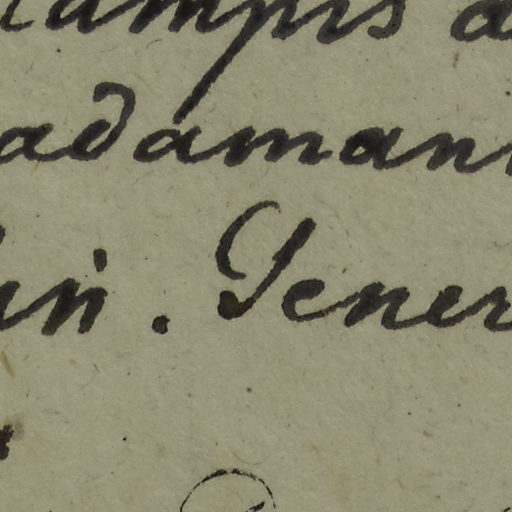 lampis a
adaman
in. Gener